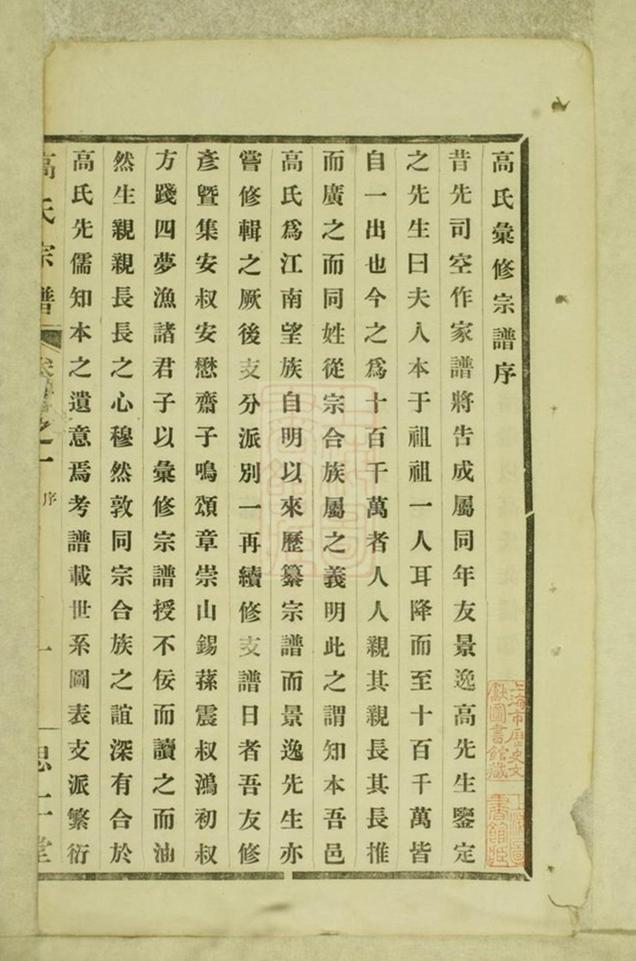 高氏彙修宗譜序
昔先司空作家譜將告成屬同年友景逸高先生鑒定
之先生曰夫人本于祖祖一人耳降而至十百千萬皆
自一出也今之爲十百千萬者人人親其親長其長推
而廣之而同姓從宗合族屬之義明此之謂知本吾邑
高氏爲江南望族自明以來歷纂宗譜而景逸先生亦
嘗修輯之厥後支分派別一再續修支譜日者吾友修
彥曁集安叔安懋齋子鳴頌章崇山錫蓀震叔鴻初叔
方踐四夢漁諸君子以彙修宗譜授不佞而讀之而油
然生親親長長之心穆然敦同宗合族之誼深有合於
高氏先儒知本之遺意焉考譜載世系圖表支派繁衍
高氏宗譜 卷 之一 序 一 思 堂
上海市歷史文獻圖書館藏